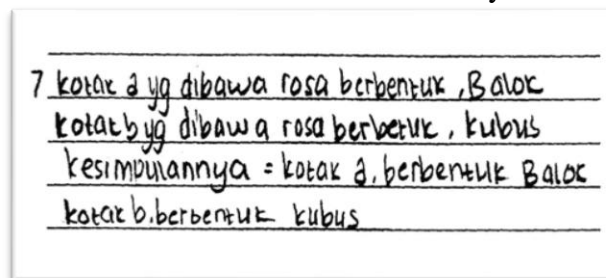 7 kotak a yg dibawa rosa berbentuk, Balok
kotak b yg dibawa rosa berbetuk, kubus
kesimpulannya = kotak a. berbentuk Balok
kotak b. berbentuk kubus